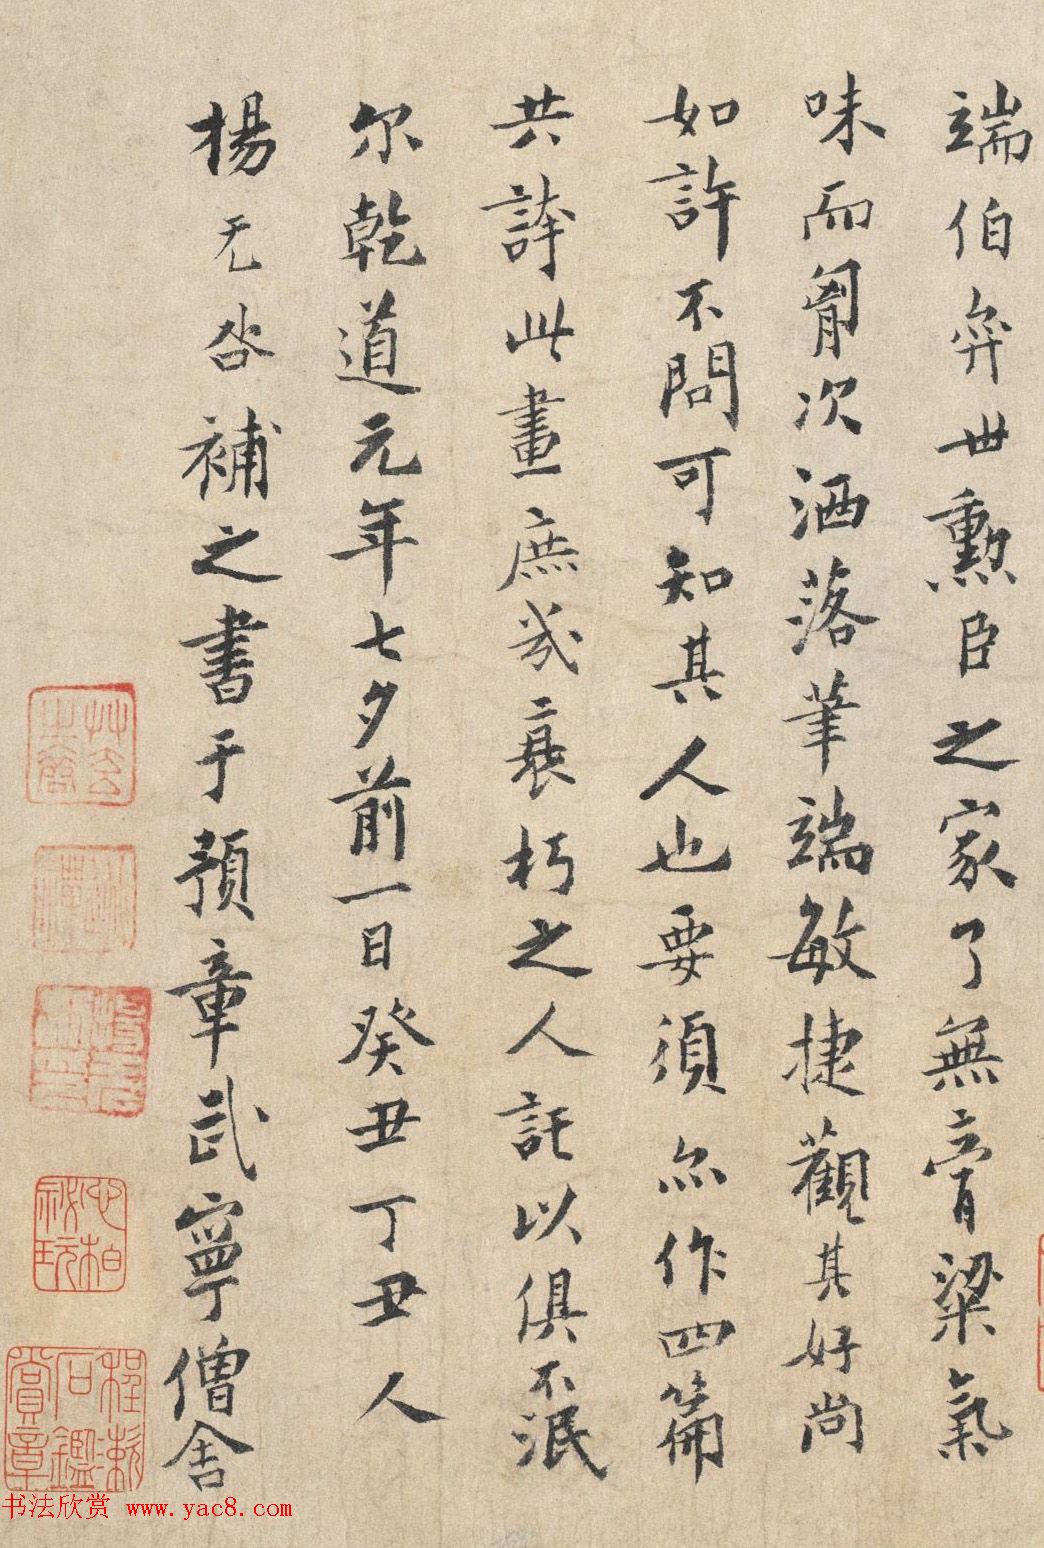 端伯弈世勲臣之家了無膏粱氣
味而胷次洒落筆端敏捷觀其好尚
如許不問可知其人也要須亦作四篇
共誇此畫庶幾衰朽之人託以俱不泯
尔乾道元年七夕前一日癸丑丁丑人
揚无咎補之書于預章武寧僧舍
程漱石鑑賞章
书法欣赏 www.yac8.com